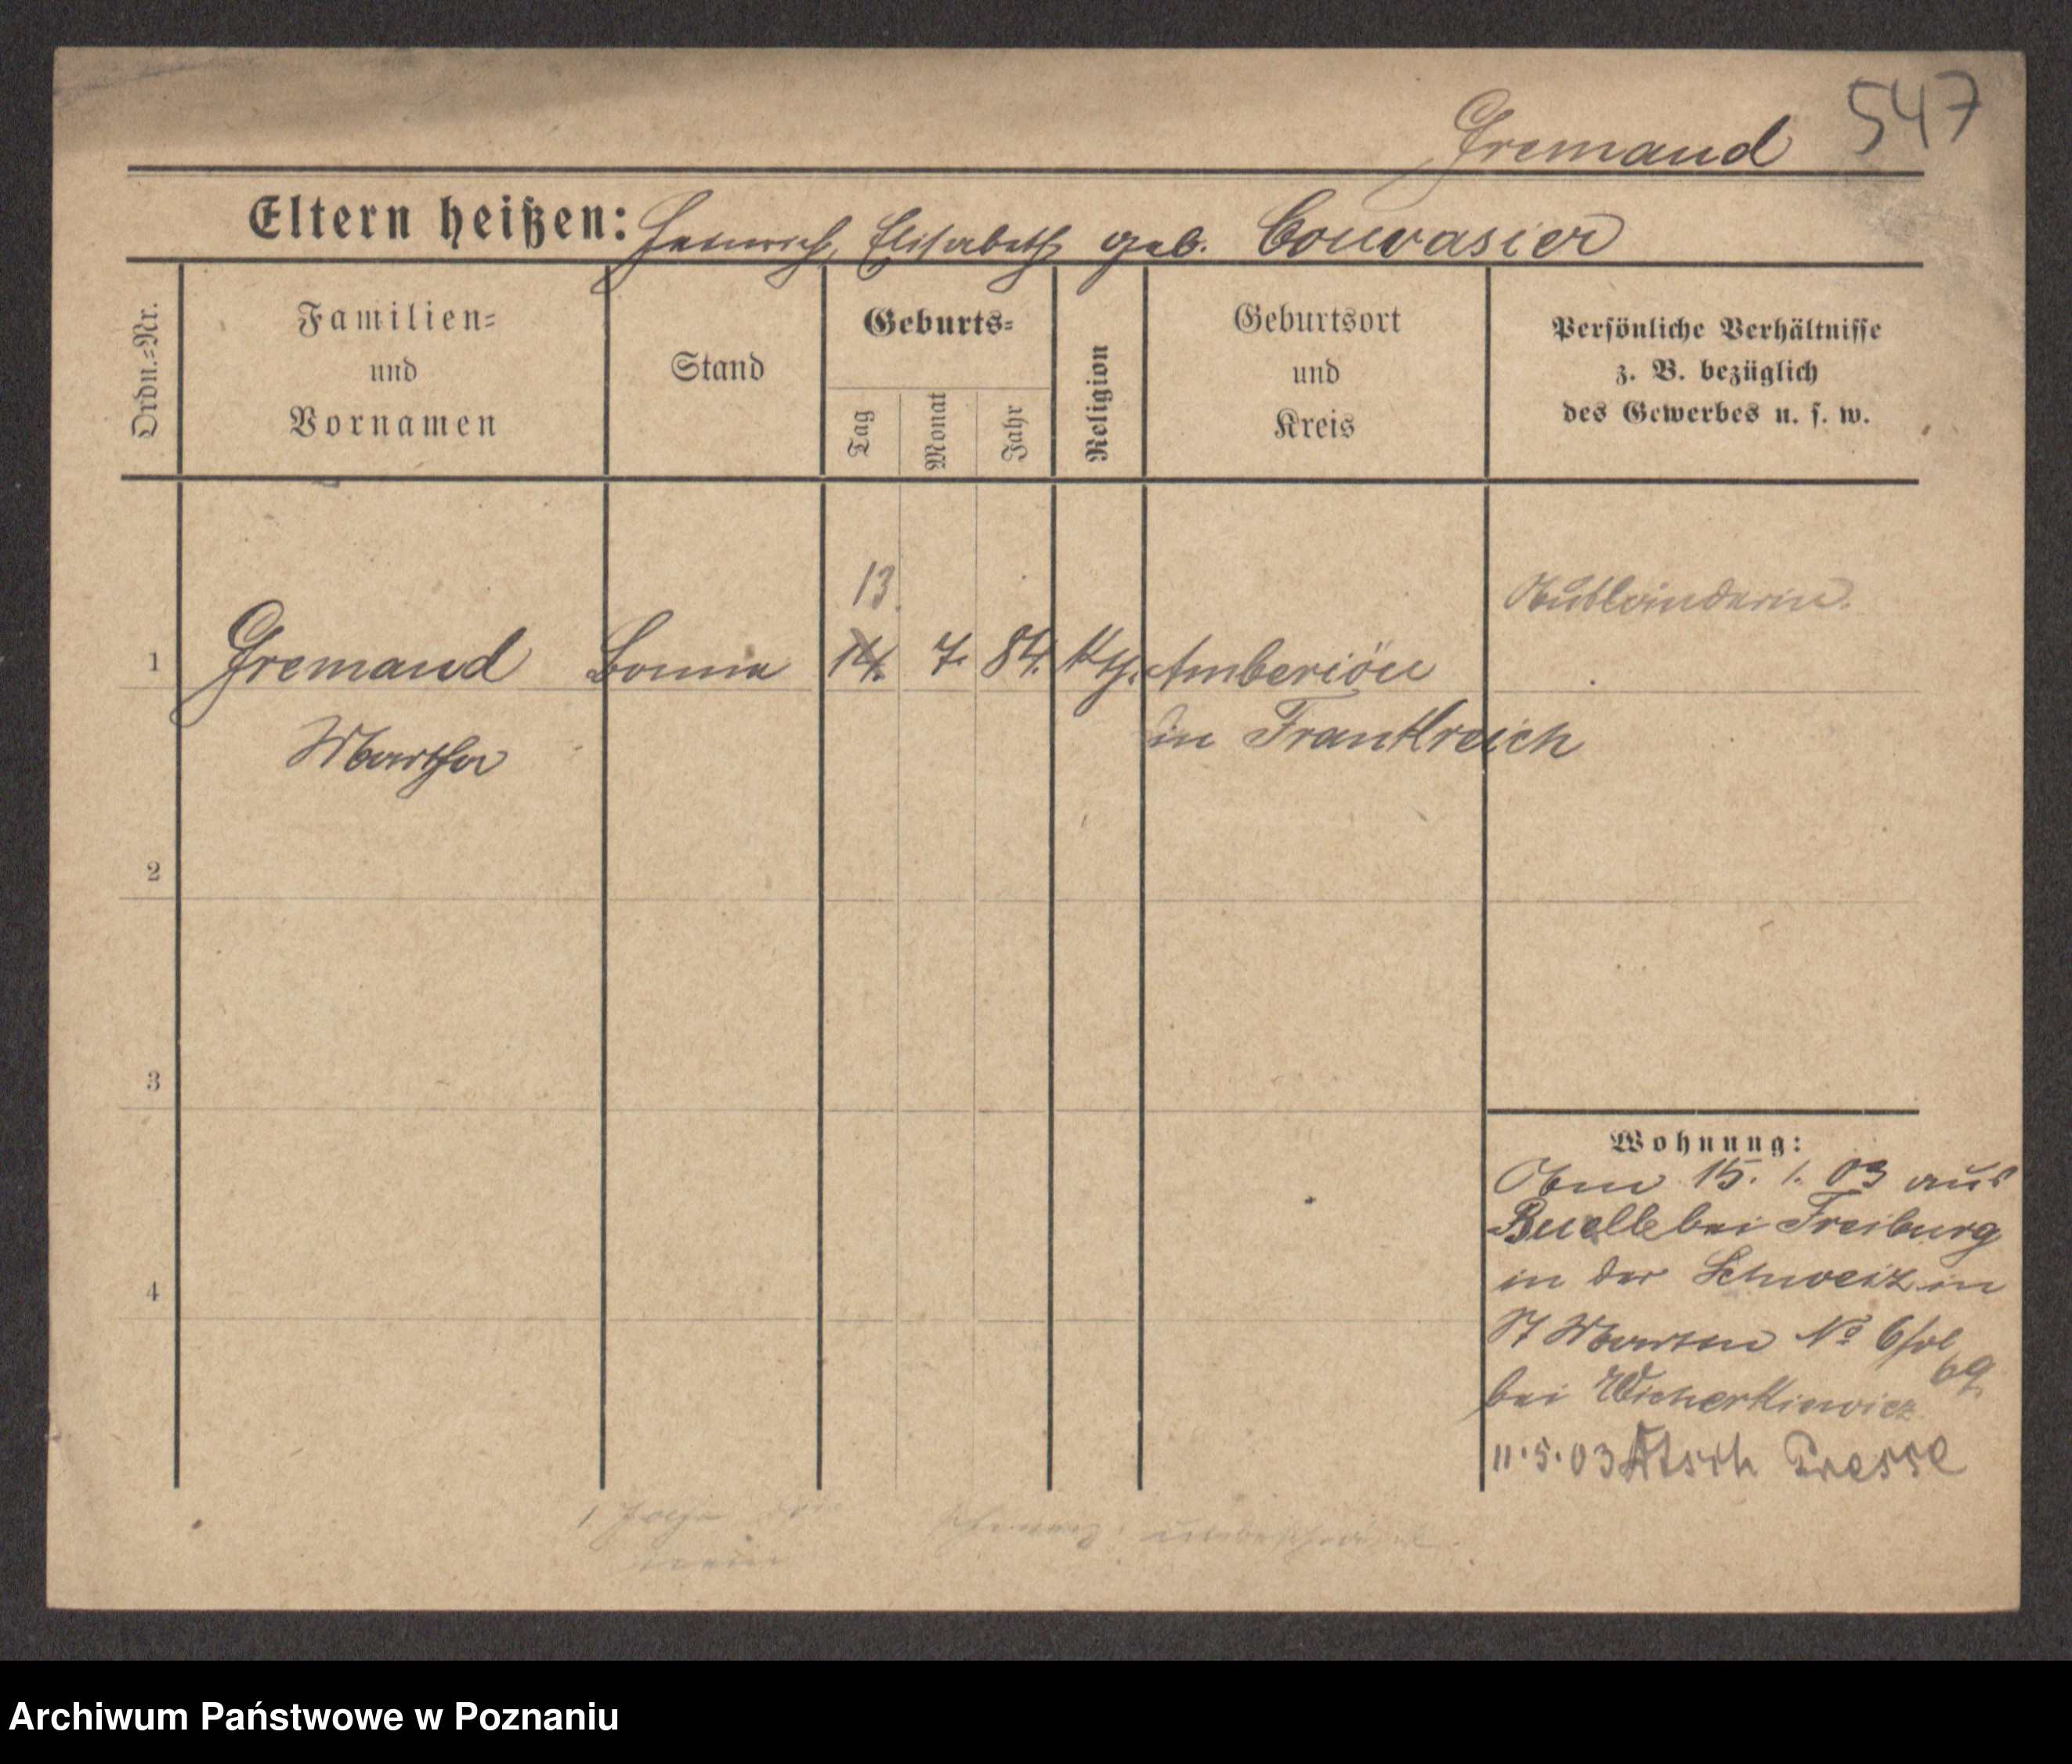 547
Gremaud
Eltern heißen: Heinrich, Elisabeth geb. Couvasier
Ordn.=Nr.
Familien=
und
Vornamen
Stand
Geburts=
Tag
Monat
Jahr
Religion
Geburtsort
und
Kreis
Persönliche Verhältnisse
z. B. bezüglich
des Gewerbes u. s. w.
13.
Ausländerin.
1 Gremaud Bonne 14. 7. 84. kth. Amberiöu
Martha
in Frankreich
2
3
4
Wohnung:
Am 15. 1. 03 aus
Buelle bei Freiburg
in der Schweiz in
St Martin No 6
69
bei Wicherkiewicz
11.5.03 Presse
Archiwum Państwowe w Poznaniu